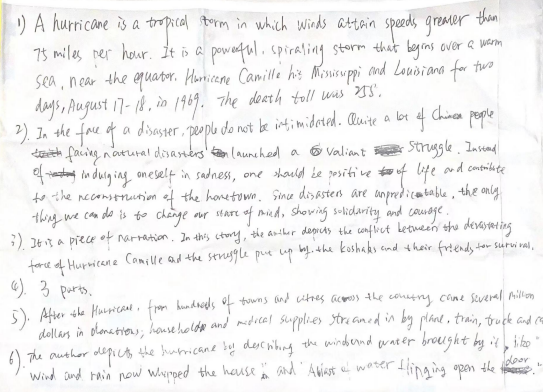 1) A hurricane is a tropical storm in which winds attain speeds greater than
75 miles per hour. It is a powerful, spiraling storm that begins over a warm
sea, near the equator. Hurricane Camille hit Mississippi and Louisiana for two
days, August 17-18, in 1969. The death toll was 255.
2). In the face of a disaster, people do not be intimidated. Quite a lot of people
facing natural disasters launched a valiant struggle. Instead
of indulging oneself in sadness, one should be positive of life and contribute
to the reconstruction of the hometown. Since disasters are unpredictable, the only
thing we can do is to change our state of mind, showing solidarity and courage.
3). It is a piece of narration. In this story, the author depicts the conflict between the devastating
force of Hurricane Camille and the struggle put up by the Koshaks and their friends for survival.
4). 3 parts.
5). After the Hurricane, from hundreds of towns and cities across the country came several million
dollars in donations; household and medical supplies streamed in by plane, train, truck and
6). The author depicts the hurricane by describing the wind and water brought by it, like "
wind and rain now whipped the house" and "A blast of water flinging open the door